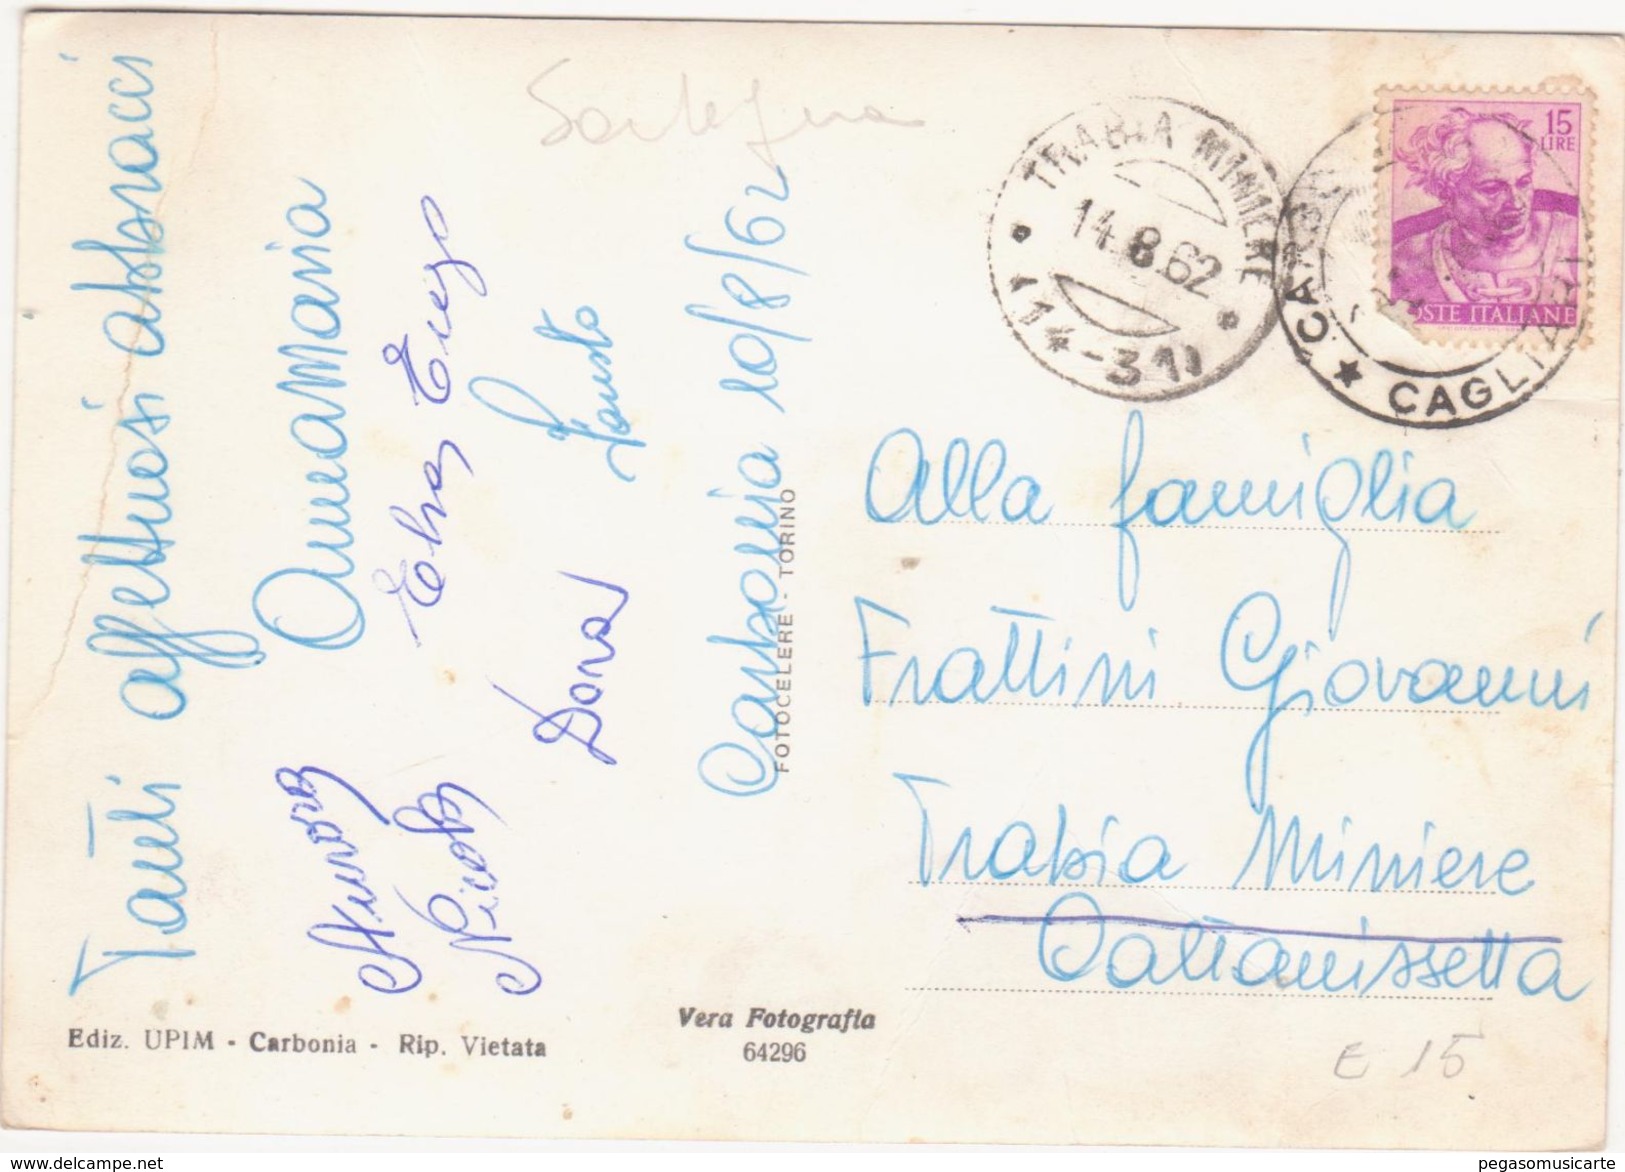 Sardegna
Tanti affettuosi abbracci
Annamaria
Enzo
Fausto
Aurora
Nicola
Dora
Carbonia 10/8/62
FOTOCELERE - TORINO
TRABIA MINIERE
14.8.62
15
LIRE
POSTE ITALIANE
CAGLIARI
Alla famiglia
Frattini Giovanni
Trabia Miniere
Caltanissetta
Ediz. UPIM - Carbonia - Rip. Vietata
Vera Fotografia
64296
€ 15
www.delcampe.net
pegasomusicarte